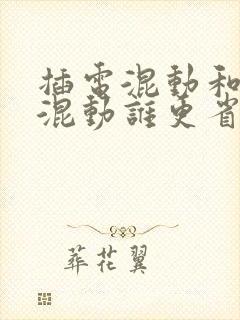 插電混動和
混動誰更省
葬花翼